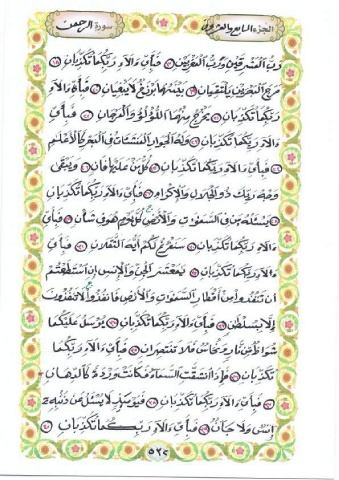 الجزء السابع والعشرون سورة الرحمن
رب المشرقين ورب المغربين ۝ فبأي ءالاء ربكما تكذبان ۝
مرج البحرين يلتقيان ۝ بينهما برزخ لا يبغيان ۝ فبأي ءالاء
ربكما تكذبان ۝ يخرج منهما اللؤلؤ والمرجان ۝ فبأي
ءالاء ربكما تكذبان ۝ وله الجوار المنشئات في البحر كالأعلام
۝ فبأي ءالاء ربكما تكذبان ۝ كل من عليها فان ۝ ويبقى
وجه ربك ذو الجلال والإكرام ۝ فبأي ءالاء ربكما تكذبان
۝ يسئله من في السموت والأرض كل يوم هو في شأن ۝ فبأي
ءالاء ربكما تكذبان ۝ سنفرغ لكم أيه الثقلان ۝ فبأي
ءالاء ربكما تكذبان ۝ يمعشر الجن والإنس إن استطعتم
أن تنفذوا من أقطار السموت والأرض فانفذوا لا تنفذون
إلا بسلطن ۝ فبأي ءالاء ربكما تكذبان ۝ يرسل عليكما
شواظ من نار ونحاس فلا تنتصران ۝ فبأي ءالاء ربكما
تكذبان ۝ فإذا انشقت السماء فكانت وردة كالدهان
۝ فبأي ءالاء ربكما تكذبان ۝ فيومئذ لا يسئل عن ذنبه
إنس ولا جان ۝ فبأي ءالاء ربكما تكذبان ۝
٥٣٢